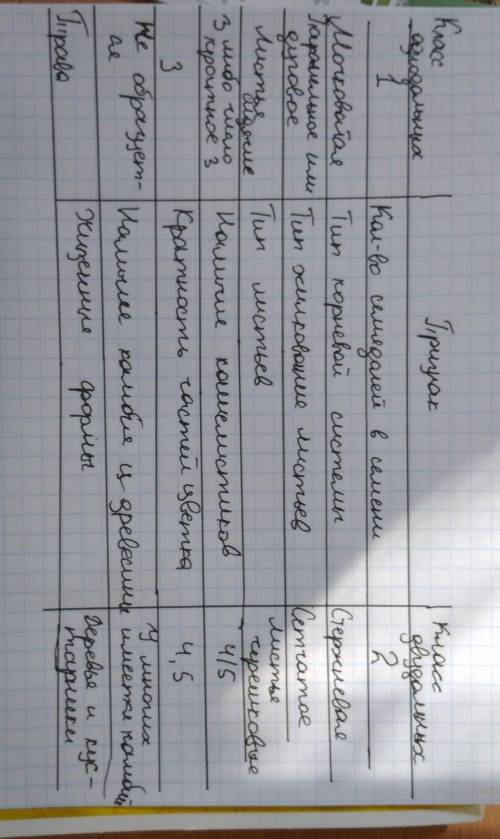 Класс однодольных | Признак | Класс двудольных
1 | Кол-во семядолей в семени | 2
Мочковатая | Тип корневой системы | Стержневая
Параллельное или дуговое | Тип жилкования листьев | Сетчатое
Листья | Тип листьев | Листья черешковые
3 либо число кратное 3 | Наличие | 4/5
3 | Кратность частей цветка | 4,5
Не образует-ая | Наличие камбия и древесины | У многих имеется камбий
Трава | Жизненные формы | Деревья и кус-тарники